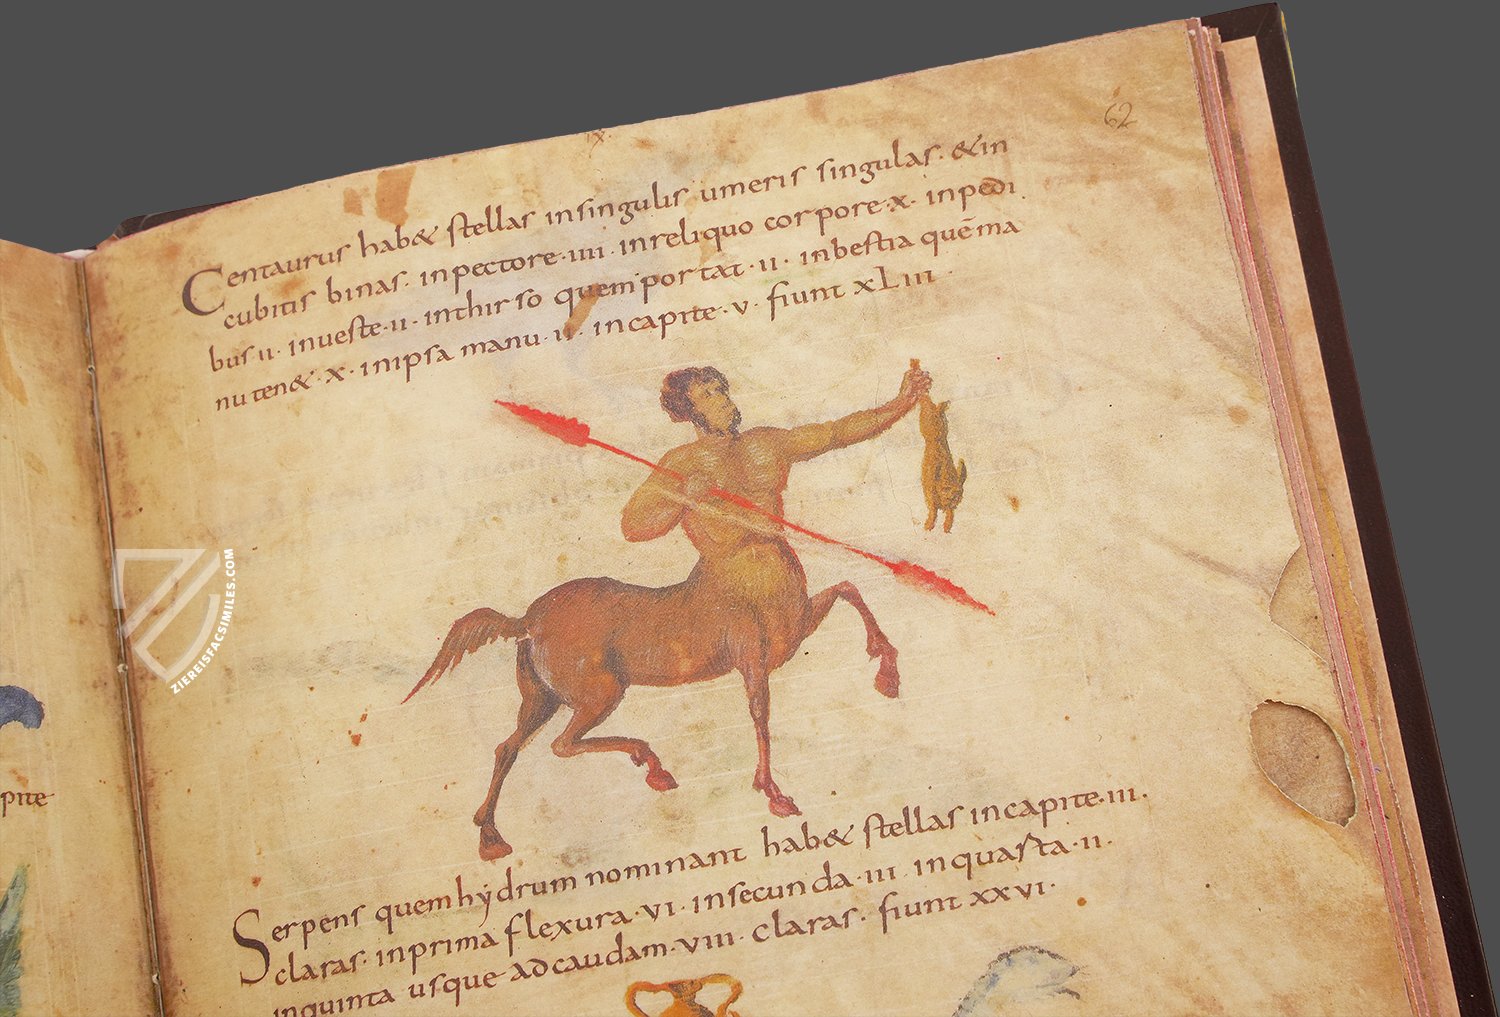 pite
ıx.
62
Centaurus hab& stellas insingulis umeris singulas · &in
cubitis binas · inpectore · IIII · inreliquo corpore · x · inpedi
bus II · inueste · II · inthirso quem portat · II · inbestia quē ma
nu ten& · x · inipsa manu · II · incapite · v · fiunt xLIII ·
Serpens quem hydrum nominant hab& stellas incapite · III ·
claras · inprima flexura · VI · insecunda · III · inquasta · II ·
inquinta usque adcaudam · VIII · claras · fiunt xxvI ·
ZIEREISFACSIMILES.COM